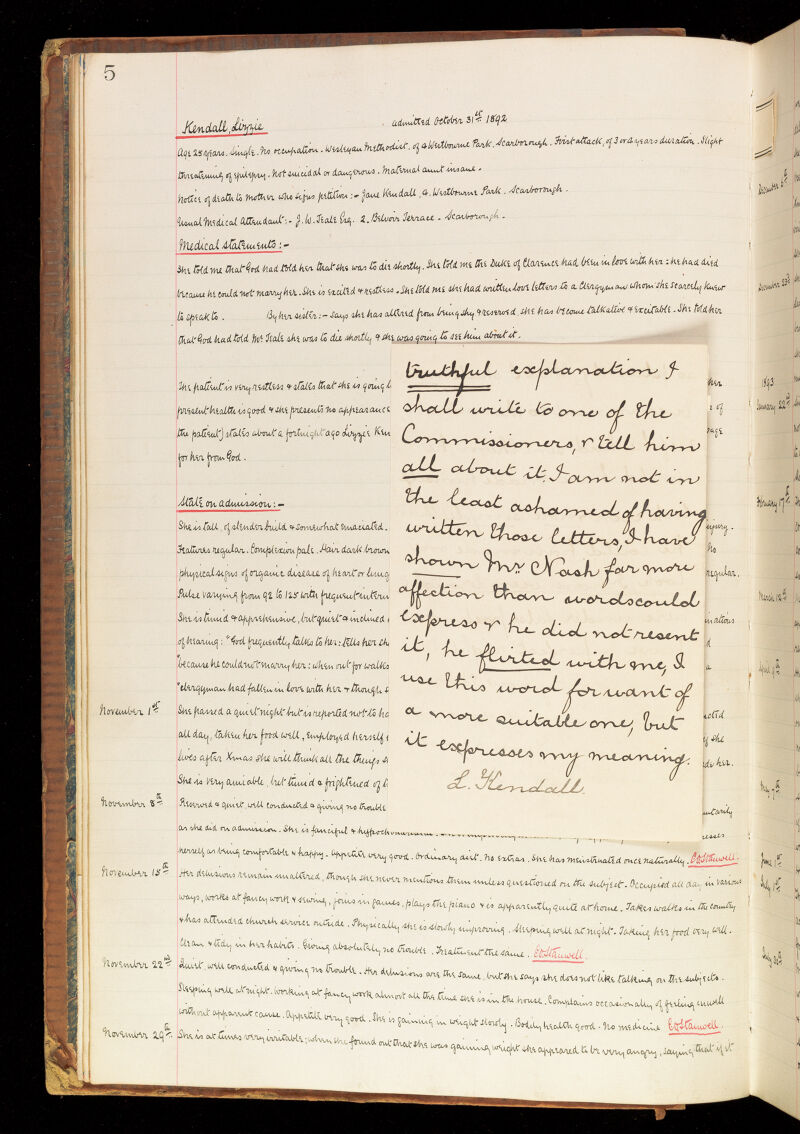 5
Kendall, Lizzie
admitted October 31st 1892
Age 25 years. Single. No occupation. Wesleyan Methodist. of 4 Westbourne Park, Scarborough. First attack, of 3 or 4 years duration. Slight
threatening of epilepsy. Not suicidal or dangerous. Maternal aunt insane.
Notice of death to mother who signs petition:- Jane Kendall, 4. Westbourne Park. Scarborough.
Usual Medical Attendant:- J. W. Teale Esq. 2. Belvoir Terrace - Scarborough.
Medical Statements:-
She told me that God had told her that she was to die shortly. She told me the Duke of Clarence had been in love with her: he had died
because he could not marry her. She is excited & restless. She told me she had written love letters to a Clergyman whom she scarcely knew
to speak to. By her sister:- Says she has altered from being shy & reserved, she has become talkative & excitable. She told her
that God had told Mr. Teale she was to die shortly & she was going to see him about it.
The patient is very restless & states that she is going
present health is good & she presents no appearance
the patient) states about a fortnight ago Lizzie Ken
for her from God.
State on admission:-
She is tall, of slender build & somewhat emaciated.
Features regular. Complexion pale. Hair dark brown
physical signs of organic disease of heart or lung
Pulse varying from 92 to 125 with frequent interm
She is timid & apprehensive, but quiet & inclined
of hearing: "God frequently talks to her: tells her sh
"because he could not marry her: when out for walks
"clergyman had fallen in love with her & though
November 1st
She passed a quiet night but is reported not to ha
all day, taken her food well, employed herself
lives after Xmas she will think all the things
She is very amiable, but timid & frightened of
November 8th
Reserved & quiet, well conducted & giving no trouble
as she did on admission. She is fanciful &
herself as being comfortable & happy. Appetite very good. Ordinary diet. No extras. She has menstruated once naturally.
November 15th
Her delusions remain unaltered, though she never mentions them unless questioned on the subject. Occupied all day in various
ways, works at fancy work & sewing, joins in games, plays the piano & is apparently quite at home. Takes walks in the country
& has attended church service outside. Physically she is slowly improving. Sleeping well at night. Taking her food very well.
Clean & tidy in her habits. Giving absolutely no trouble. Treatment the same.
November 22nd
Quiet, well conducted & giving no trouble. Her delusions are the same, but she says she does not like talking on the subjects.
Sleeping well at night. Working at fancy work almost all the time she is in the house. Complains occasionally of feeling unwell
without apparent cause. Appetite very good. She is gaining in weight slowly. Bodily health good. No medicine
November 29th
She is at times very irritable; when she found out that she was gaining weight she appeared to be very angry, saying that if it
truthful explanation I
shall write to one of the
Commissioners, & tell him
all about it. I am not in
the least ashamed of having
written those letters, I have
shown Mr. Nash far more
affection than words could
express & he did not resent
it, he flirted with me, I
use this word for want of
a more suitable one, but
it expresses my meaning.
L. Kendall.
1893